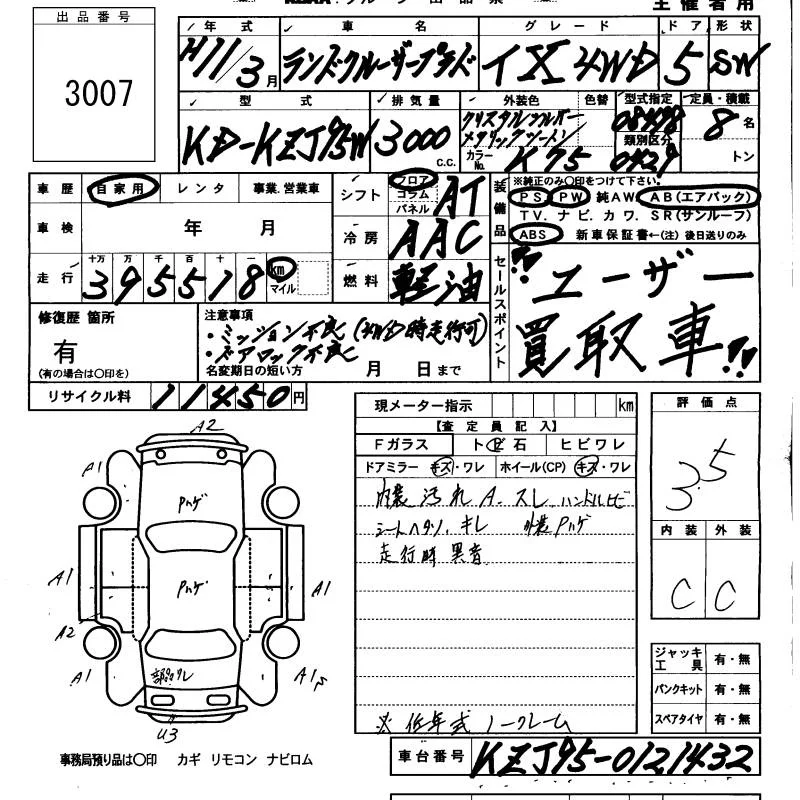 出品番号
3007
主催者用
年式 車名 グレード ドア 形状
H11/3月 ランドクルーザープラド TX 4WD 5 SW
型式 排気量 外装色 色替 型式指定 定員・積載
KD-KZJ95W 3000 c.c. クリスタルシルバー メタリックツートン 08498 8名
カラーNo. K75 類別区分 0429 トン
車歴 自家用 レンタ 事業.営業車
シフト フロア コラム パネル AT
装備品 ※純正のみ〇印をつけて下さい.
PS. PW 純AW. AB(エアバック)
TV. ナビ. カワ. SR(サンルーフ)
ABS 新車保証書←(注) 後日送りのみ
車検 年 月
冷房 AAC
走行 十万 万 千 百 十 一
395518 km マイル
燃料 軽油
セールスポイント
ユーザー
買取車!!
修復歴 箇所
有
(有の場合は〇印を)
注意事項
・ミッション不良(4WD時走行可)
・ドアロック不良
名変期日の短い方 月 日まで
リサイクル料 11450円
現メーター指示 km
【査定員記入】
Fガラス トビ石 ヒビワレ
ドアミラー キズ・ワレ ホイール(CP) キズ・ワレ
内装汚れ A.スレ ハンドルヒビ
シートヘタリ.キレ 外装Pハゲ
走行時異音
※低年式ノークレーム
評価点
3.5
内装 外装
C C
A2
A1 A1
Pハゲ
A1 Pハゲ A1
A2
A1 A1
U3
ジャッキ工具 有・無
パンクキット 有・無
スペアタイヤ 有・無
事務局預り品は〇印 カギ リモコン ナビロム
車台番号 KZJ95-0121432